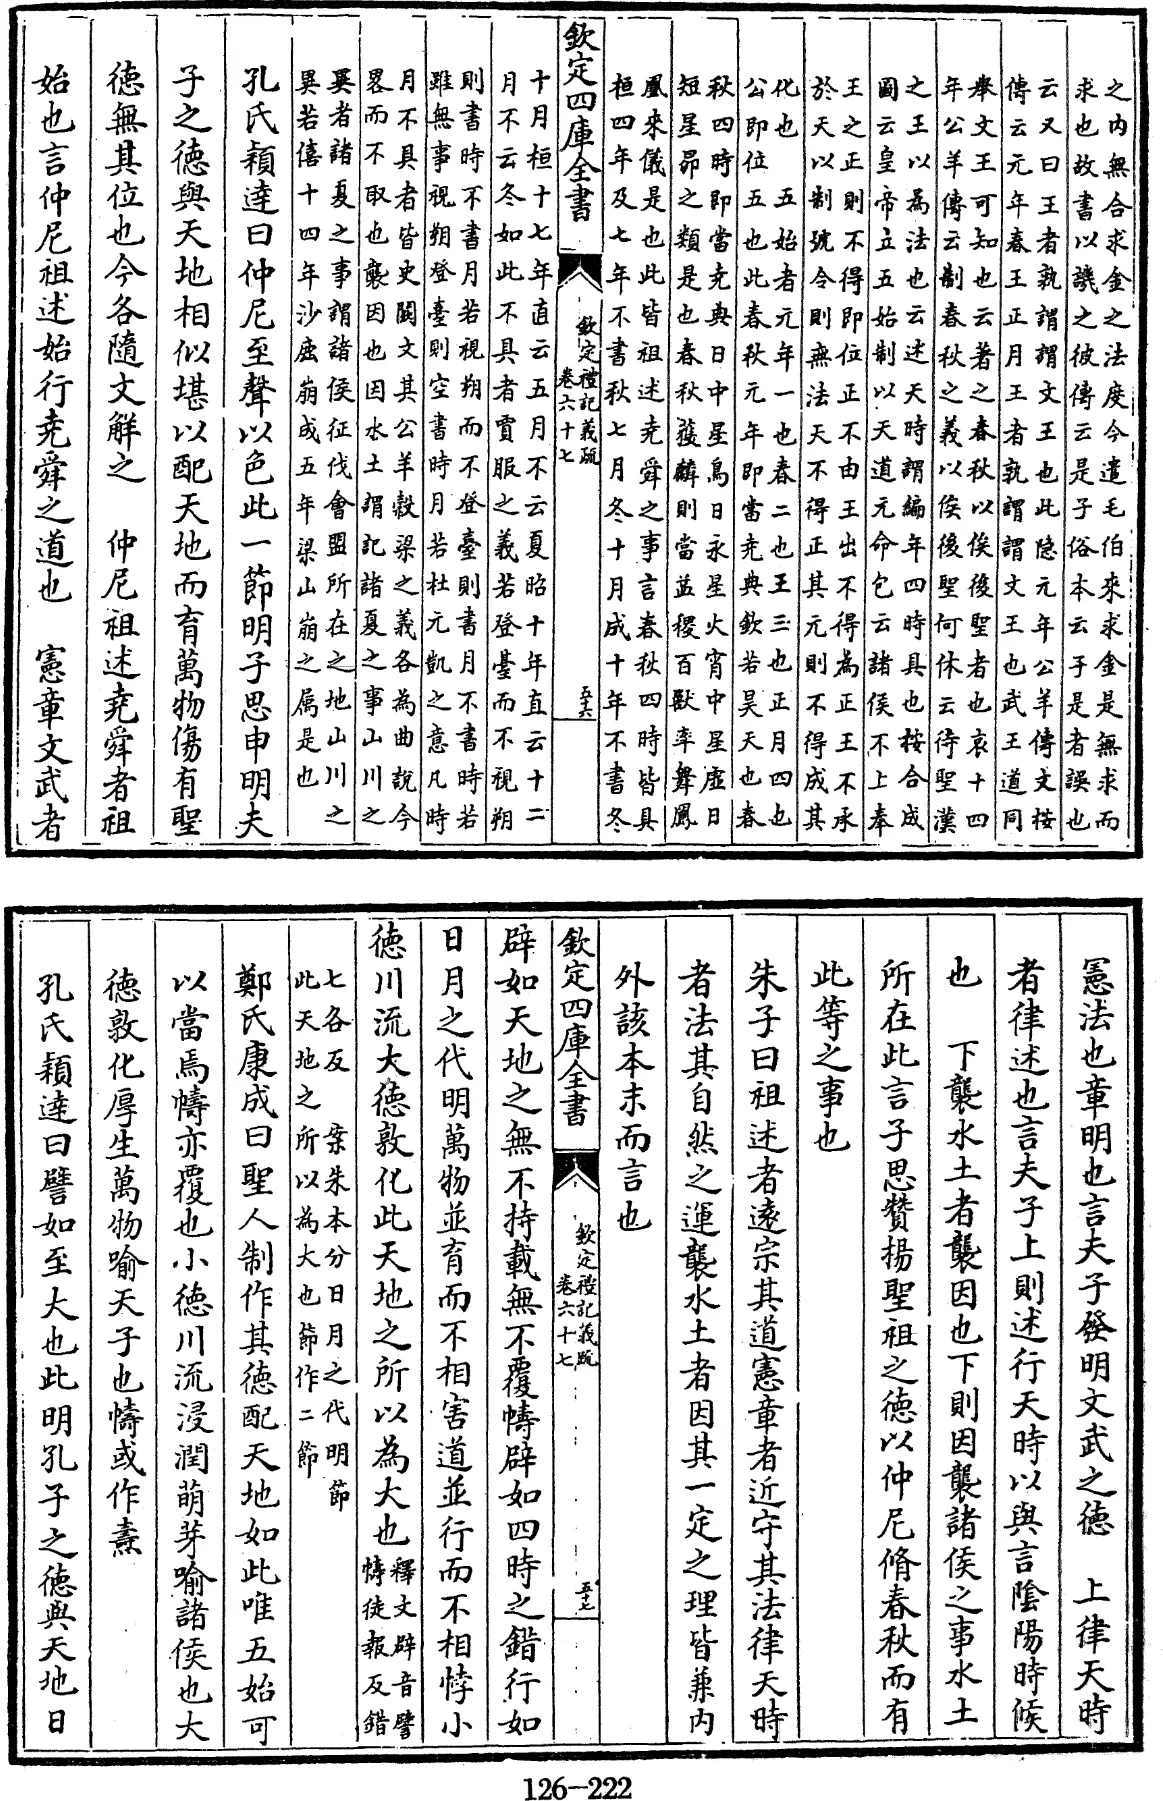 之内無合求金之法度今遣毛伯來求金是無求而
求也故書以譏之彼傳云是子俗本云于是者誤也
云又曰王者孰謂謂文王也此隐元年公羊傳文桉
傳云元年春王正月王者孰謂謂文王也武王道同
舉文王可知也云著之春秋以俟後聖者也哀十四
年公羊傳云制春秋之義以俟後聖何休云待聖漢
之王以為法也云述天時謂編年四時具也桉合成
圖云皇帝立五始制以天道元命包云諸侯不上奉
王之正則不得即位正不由王出不得為正王不承
於天以制號令則無法天不得正其元則不得成其
化也　五始者元年一也春二也王三也正月四也
公即位五也此春秋元年即當尭典欽若昊天也春
秋四時即當尭典日中星鳥日永星火宵中星虛日
短星昴之類是也春秋獲麟則當益稷百獸率舞鳳
凰來儀是也此皆祖述尭舜之事言春秋四時皆具
桓四年及七年不書秋七月冬十月成十年不書冬
欽定四庫全書
欽定禮記義疏
卷六十七
五十六
十月桓十七年直云五月不云夏昭十年直云十二
月不云冬如此不具者賈服之義若登臺而不視朔
則書時不書月若視朔而不登臺則書月不書時若
雖無事視朔登臺則空書時月若杜元凱之意凡時
月不具者皆史闕文其公羊穀梁之義各為曲說今
畧而不取也襲因也因水土謂記諸夏之事山川之
異者諸夏之事謂諸侯征伐會盟所在之地山川之
異若僖十四年沙鹿崩成五年梁山崩之属是也
孔氏穎達曰仲尼至聲以色此一節明子思申明夫
子之德與天地相似堪以配天地而育萬物傷有聖
德無其位也今各隨文解之　仲尼祖述尭舜者祖
始也言仲尼祖述始行尭舜之道也　憲章文武者
憲法也章明也言夫子發明文武之德　上律天時
者律述也言夫子上則述行天時以與言陰陽時候
也　下襲水土者襲因也下則因襲諸侯之事水土
所在此言子思贊揚聖祖之德以仲尼脩春秋而有
此等之事也
朱子曰祖述者遠宗其道憲章者近守其法律天時
者法其自然之運襲水土者因其一定之理皆兼内
外該本末而言也
欽定四庫全書
欽定禮記義疏
卷六十七
五十七
辟如天地之無不持載無不覆幬辟如四時之錯行如
日月之代明萬物並育而不相害道並行而不相悖小
德川流大德敦化此天地之所以為大也釋文辟音譬
幬徒報反錯
七各反　案朱本分日月之代明節
此天地之所以為大也節作二節
鄭氏康成曰聖人制作其德配天地如此唯五始可
以當焉幬亦覆也小德川流浸潤萌芽喻諸侯也大
德敦化厚生萬物喻天子也幬或作燾
孔氏穎達曰譬如至大也此明孔子之德與天地日
126-222